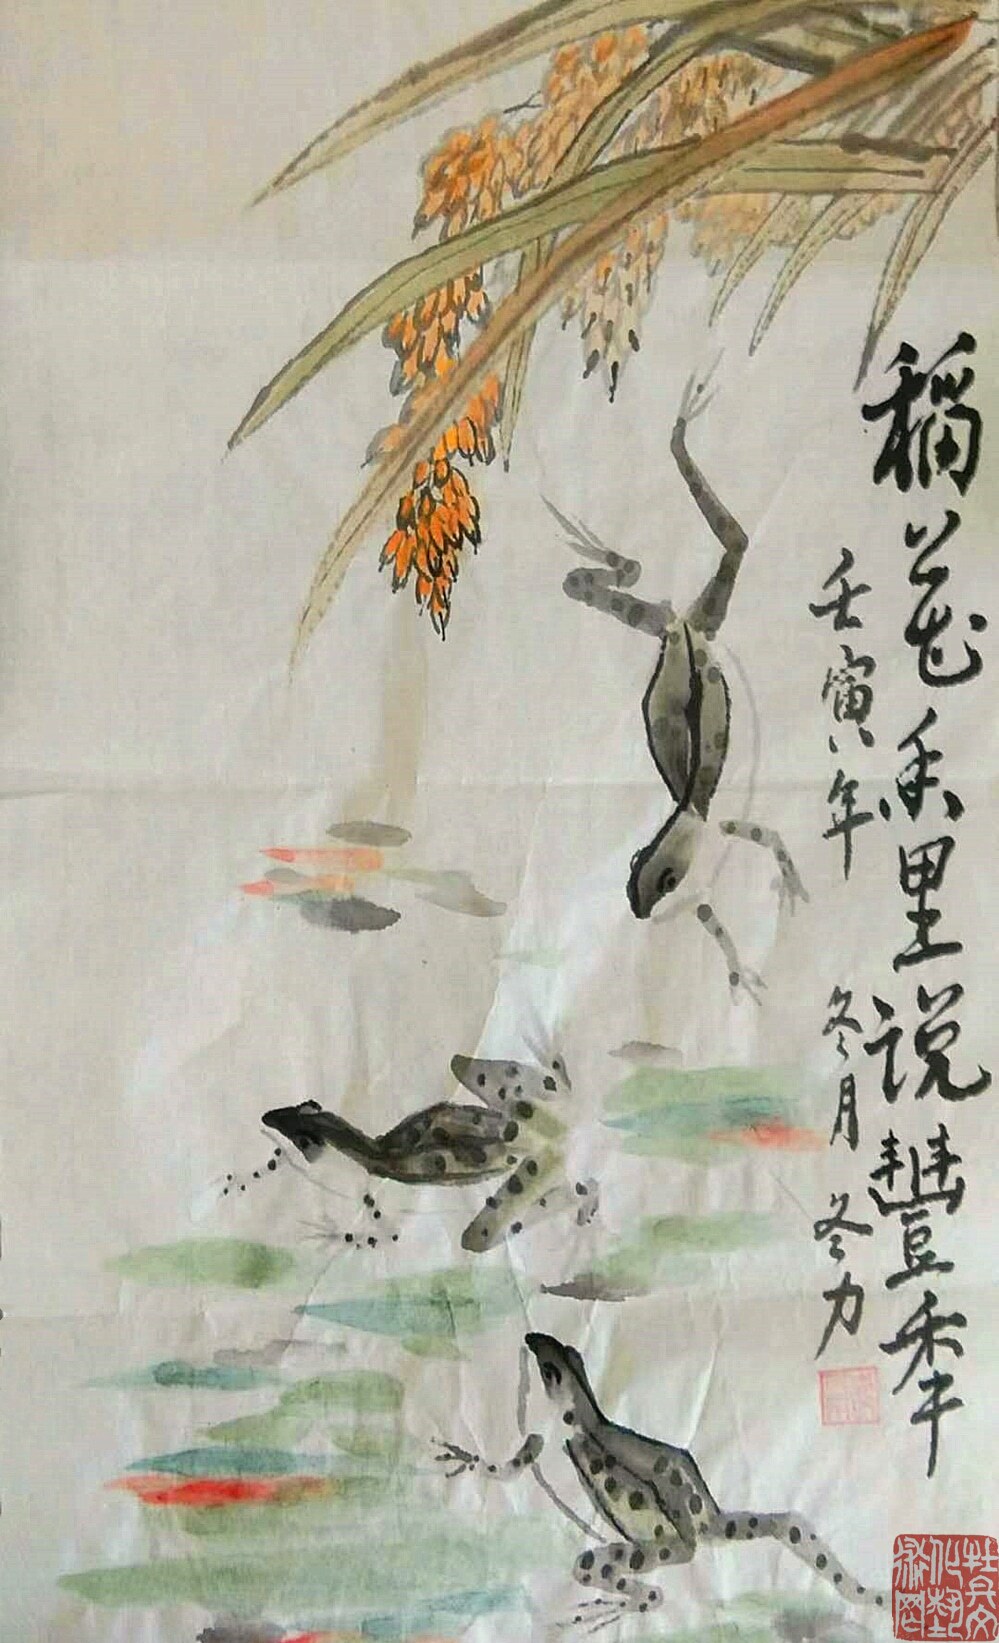 稻花香里说豐年
壬寅年 冬月 冬力